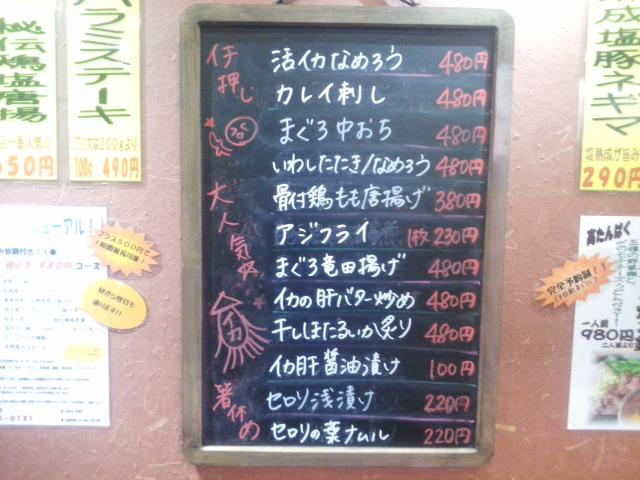 秘伝鶏塩唐揚
ハラミステーキ
ご注文は200gより
100g 490円
イチ押し
活イカなめろう 480円
カレイ刺し 480円
まぐろ中おち 480円
いわしたたき/なめろう 480円
大人気
骨付鶏もも唐揚げ 380円
アジフライ 1枚 230円
まぐろ竜田揚げ 480円
イカの肝バター炒め 480円
イカ
干しほたるいか炙り 480円
イカ肝醤油漬け 100円
箸休め
セロリ浅漬け 220円
セロリの葉ナムル 220円
成塩豚ネギマ
塩熟成が旨み
290円
ニューアル!!
プラス500円で
1時間延長可能!
コース
高たんぱく
完全予約制!
一人前
980円
二人前より